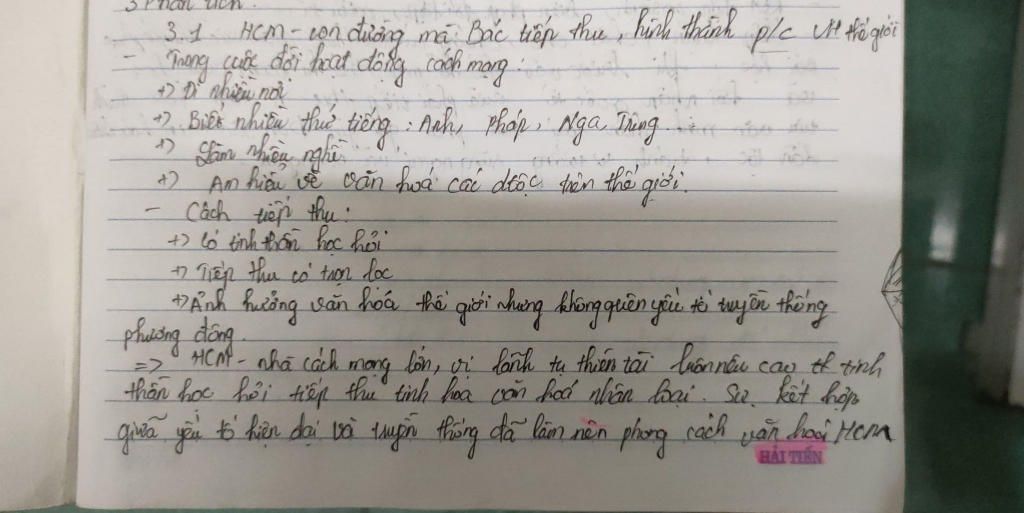 3 Phân tích.
3.1 HCM - con đường mà Bác tiếp thu, hình thành p/c VH thế giới
- Trong cuộc đời hoạt động cách mạng:
+) Đi nhiều nơi
+) Biết nhiều thứ tiếng: Anh, Pháp, Nga, Trung.
+) Làm nhiều nghề.
+) Am hiểu về văn hoá các dtộc trên thế giới.
- Cách tiếp thu:
+) Có tinh thần học hỏi
+) Tiếp thu có trọn lọc
+) Ảnh hưởng văn hóa thế giới nhưng không quên yếu tố truyền thống
phương đông.
=> HCM - nhà cách mạng lớn, vị lãnh tụ thiên tài luôn nêu cao tinh
thần học hỏi tiếp thu tinh hoa văn hoá nhân loại. Sự kết hợp
giữa yếu tố hiện đại và truyền thống đã làm nên phong cách văn hoá HCM
HẢI TIẾN